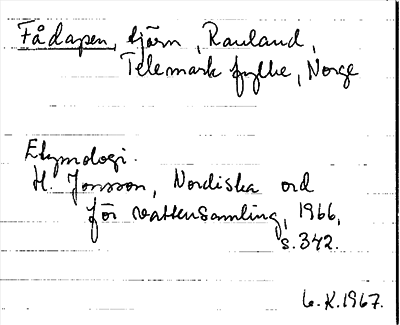 Fådapen, tjärn, Rauland,
Telemark fylke, Norge
Etymologi.
H. Jonsson, Nordiska ord
för vattensamling, 1966,
s. 342.
L.K.1967.